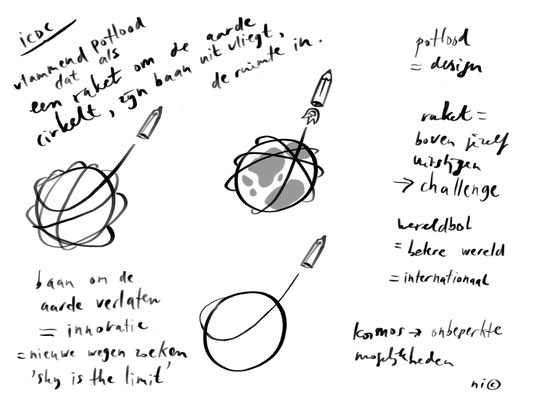 icdc
vlammend potlood
dat als
een raket om de aarde
cirkelt, zijn baan uit vliegt,
de ruimte in.
potlood
= design
raket =
boven jezelf
uitstijgen
→ challenge
wereldbol
= betere wereld
= internationaal
baan om de
aarde verlaten
= innovatie
= nieuwe wegen zoeken
'sky is the limit'
kosmos → onbeperkte
mogelijkheden
ni©